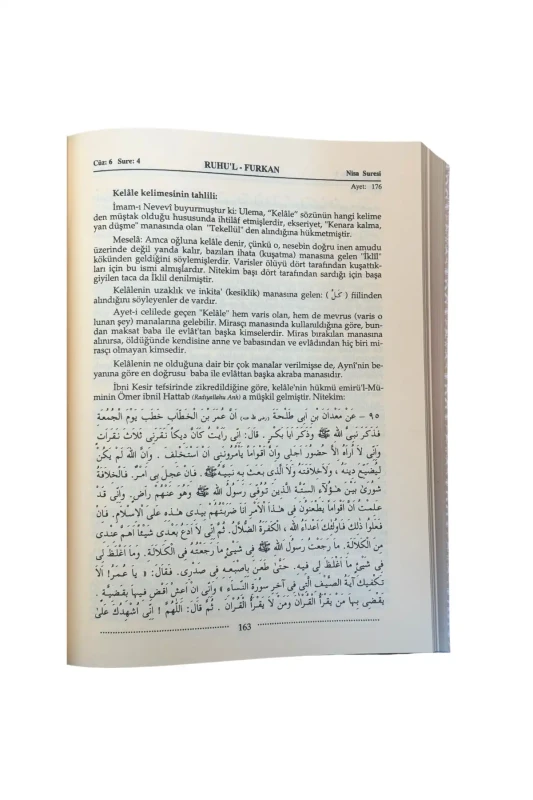 Cüz: 6 Sure: 4
RUHU'L - FURKAN
Nisa Suresi
Ayet: 176
Kelâle kelimesinin tahlili:
İmam-ı Nevevî buyurmuştur ki: Ulema, "Kelâle" sözünün hangi kelime
den müştak olduğu hususunda ihtilâf etmişlerdir, ekseriyet, "Kenara kalma,
yan düşme" manasında olan "Tekellül" den alındığına hükmetmiştir.
Meselâ: Amca oğluna kelâle denir, çünkü o, nesebin doğru inen amudu
üzerinde değil yanda kalır, bazıları ihata (kuşatma) manasına gelen "İklîl"
kökünden geldiğini söylemişlerdir. Varisler ölüyü dört tarafından kuşattık-
ları için bu ismi almışlardır. Nitekim başı dört tarafından sardığı için başa
giyilen taca da İklîl denilmiştir.
Kelâlenin uzaklık ve inkita' (kesiklik) manasına gelen: ( كَلَّ ) fiilinden
alındığını söyleyenler de vardır.
Ayet-i celilede geçen "Kelâle" hem varis olan, hem de mevrus (varis o
lunan şey) manalarına gelebilir. Mirasçı manasında kullanıldığına göre, bun-
dan maksat baba ile evlât'tan başka kimselerdir. Miras bırakılan manasına
alınırsa, öldüğünde kendisine anne ve babasından ve evlâdından hiç biri mi-
rasçı olmayan kimsedir.
Kelâlenin ne olduğuna dair bir çok manalar verilmişse de, Aynî'nin be-
yanına göre en doğrusu baba ile evlâttan başka akraba manasıdır.
İbni Kesir tefsirinde zikredildiğine göre, kelâle'nin hükmü emirü'l-Mü-
minin Ömer ibnil Hattab (Radıyallahu Anh) a müşkil gelmiştir. Nitekim:
٩٥ – عَنْ مَعْدَانَ بْنِ أَبِى طَلْحَةَ (رضى الله عنه) اَنَّ عُمَرَ بْنَ الْخَطَّابِ خَطَبَ يَوْمَ الْجُمُعَةِ
فَذَكَرَ نَبِىَّ اللهِ ﷺ وَذَكَرَ اَبَا بَكْرٍ . قَالَ: اِنِّى رَاَيْتُ كَاَنَّ دِيكًا نَقَرَنِى ثَلَاثَ نَقَرَاتٍ
وَاِنِّى لَا اُرَاهُ اِلَّا حُضُورَ اَجَلِى وَاِنَّ اَقْوَامًا يَأْمُرُونَنِى اَنْ اَسْتَخْلِفَ . وَاِنَّ اللهَ لَمْ يَكُنْ
لِيُضَيِّعَ دِينَهُ وَلَاخِلَافَتَهُ وَلَا الَّذِى بَعَثَ بِهِ نَبِيَّهُ ﷺ . فَاِنْ عَجِلَ بِى اَمْرٌ. فَالْخِلَافَةُ
شُورَى بَيْنَ هٰؤُلَاءِ السِّتَّةِ الَّذِينَ تُوُفِّىَ رَسُولُ اللهِ ﷺ وَهُوَ عَنْهُمْ رَاضٍ. وَاِنِّى قَدْ
عَلِمْتُ اَنَّ اَقْوَامًا يَطْعَنُونَ فِى هٰذَا الْاَمْرِ اَنَا ضَرَبْتُهُمْ بِيَدِى هٰذِهِ عَلَى الْاِسْلَامِ. فَاِنْ
فَعَلُوا ذٰلِكَ فَاُولٰئِكَ اَعْدَاءُ اللهِ ، الْكَفَرَةُ الضُّلَّالُ. ثُمَّ اِنِّى لَا اَدَعُ بَعْدِى شَيْئًا اَهَمَّ عِنْدِى
مِنَ الْكَلَالَةِ. مَا رَاجَعْتُ رَسُولَ اللهِ ﷺ فِى شَيْئٍ مَا رَاجَعْتُهُ فِى الْكَلَالَةِ. وَمَا اَغْلَظَ لِى
فِى شَيْئٍ مَا اَغْلَظَ لِى فِيهِ. حَتَّى طَعَنَ بِاِصْبَعِهِ فِى صَدْرِى. فَقَالَ: « يَا عُمَرُ! اَلَا
تَكْفِيكَ آيَةُ الصَّيْفِ الَّتِى فِى آخِرِ سُورَةِ النِّسَاءِ » وَاِنِّى اِنْ اَعِشْ اَقْضِ فِيهَا بِقَضِيَّةٍ
يَقْضِى بِهَا مَنْ يَقْرَأُ الْقُرْآنَ وَمَنْ لَا يَقْرَأُ الْقُرْآنَ . ثُمَّ قَالَ: اَللّٰهُمَّ ! اِنِّى اُشْهِدُكَ عَلَى
163